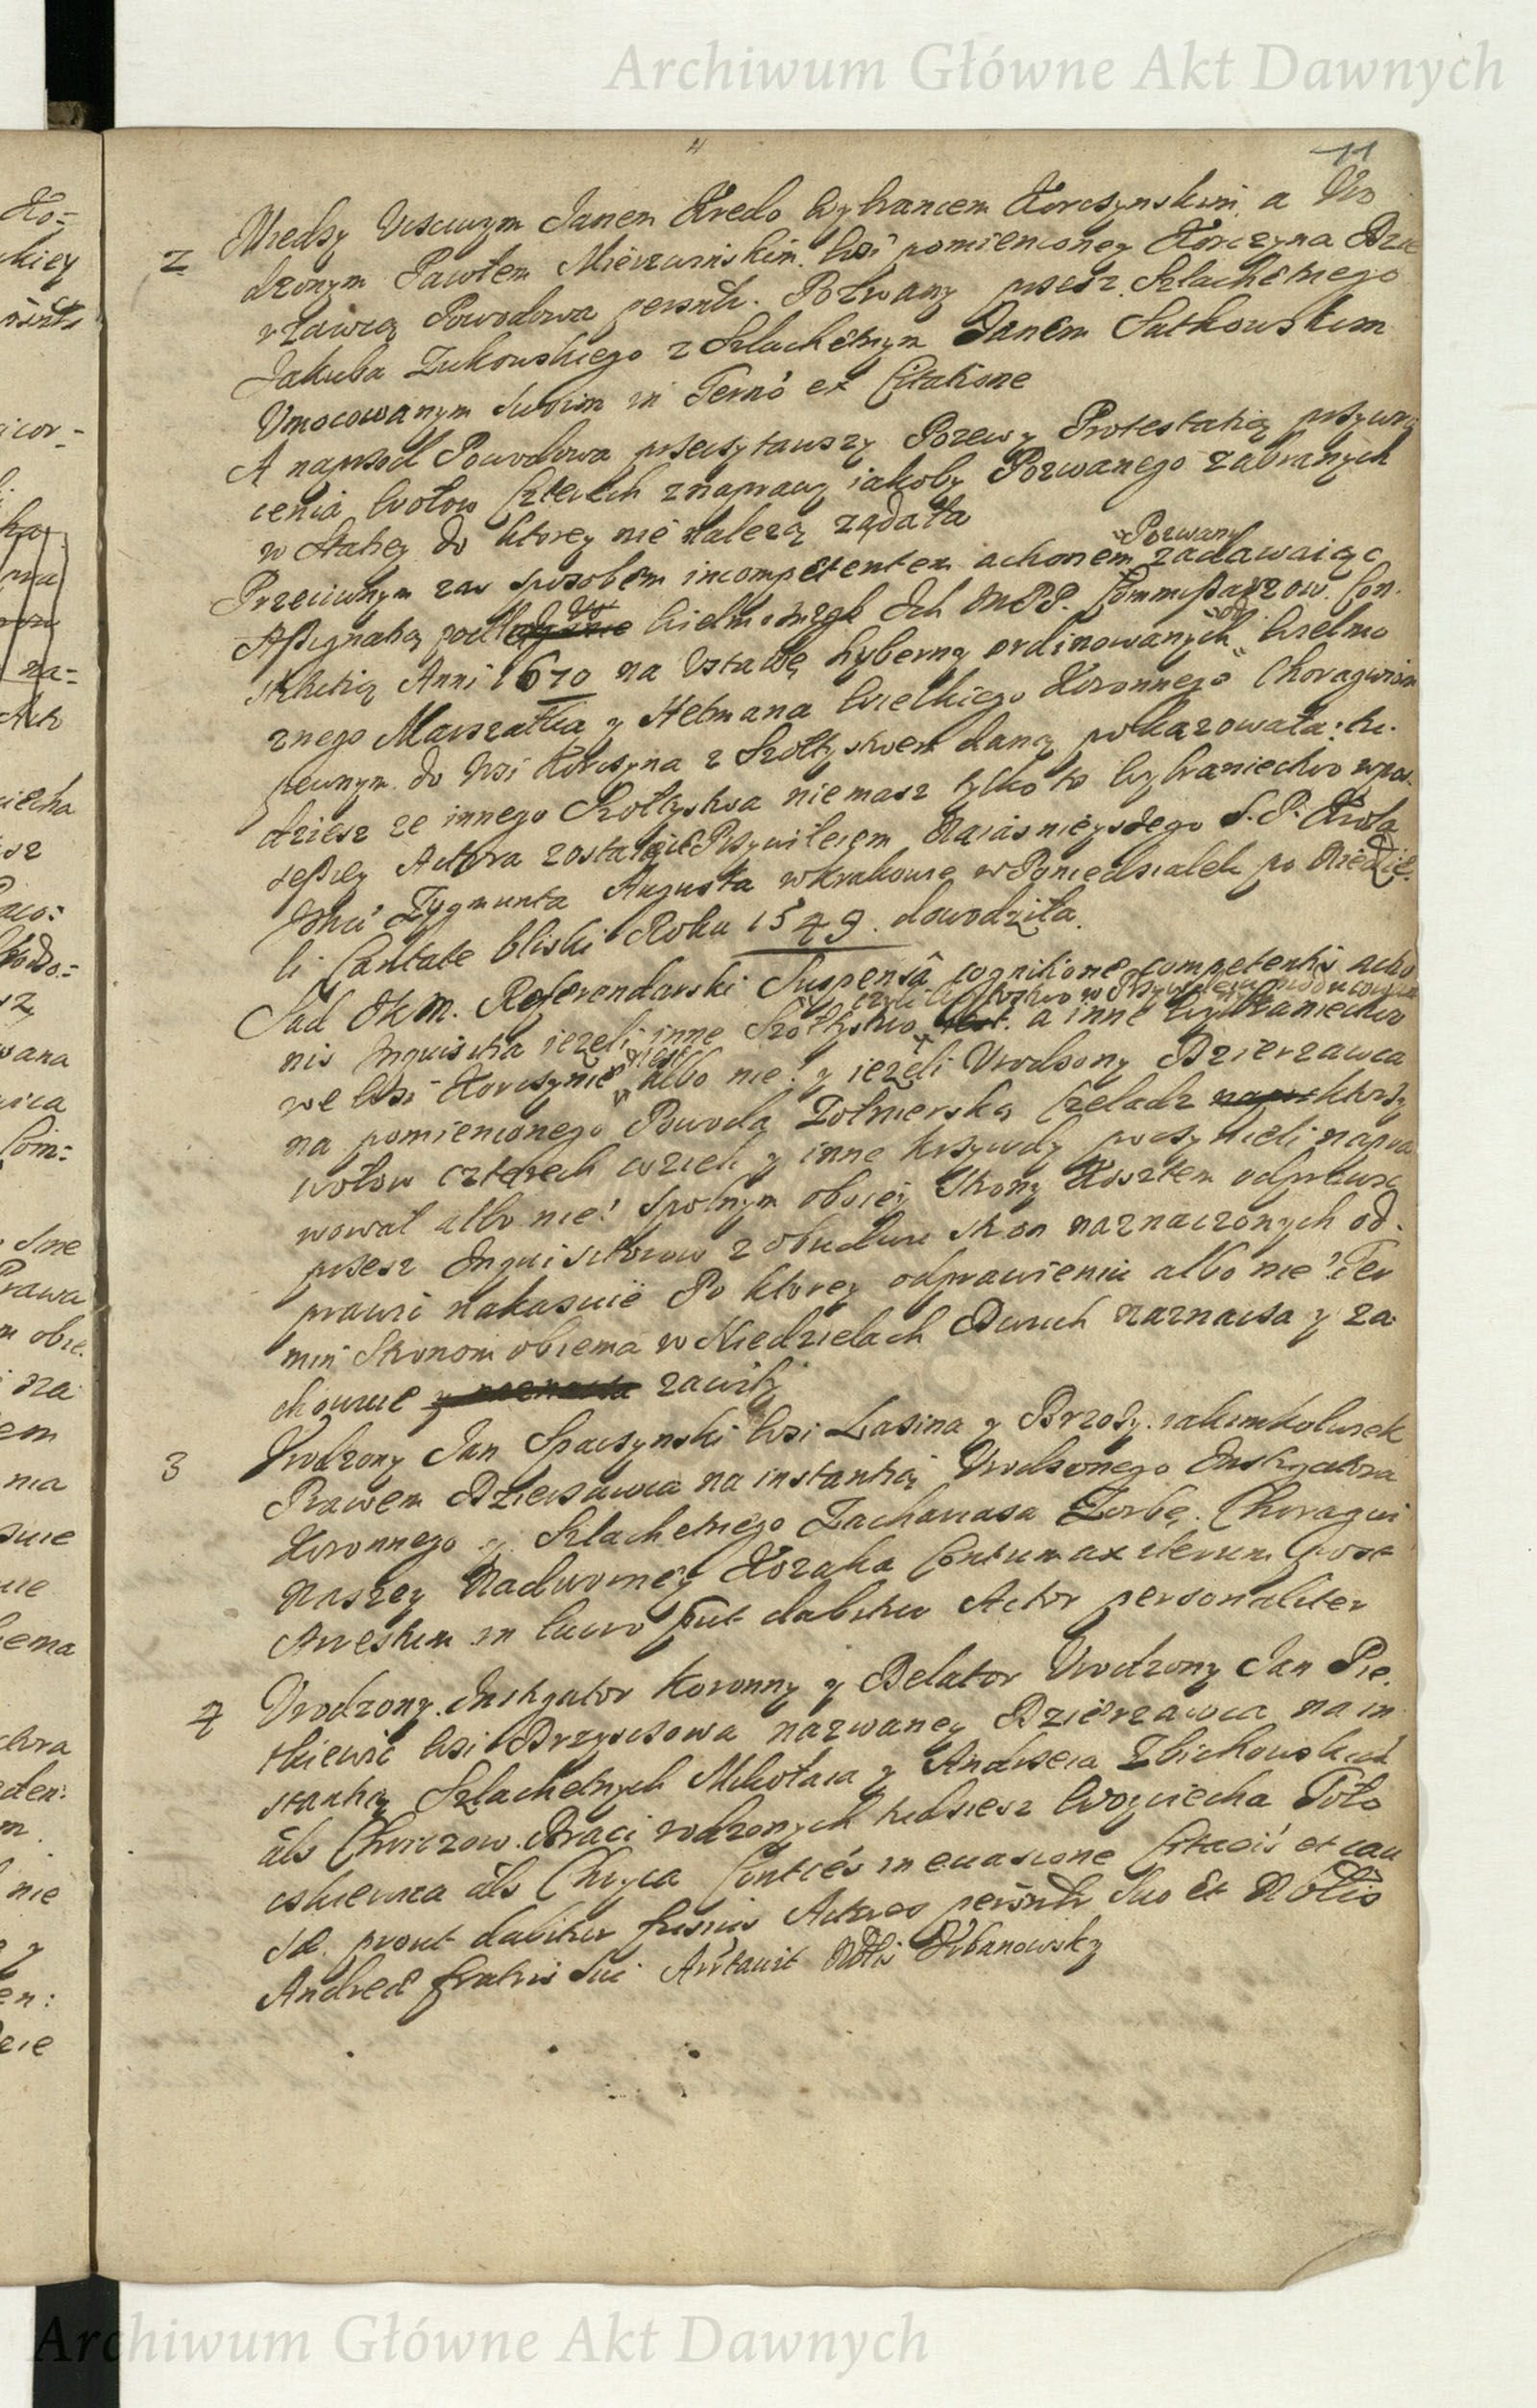 Archiwum Główne Akt Dawnych
11
2 Miedzy Uczciwym Janem Kredo Wybrancem Korczynskim a Vro
dzonym Pawłem Mierzwinskim Wsi pomienioney Korczyna Dzie
rzawcą Powodowa personlr. Pozwany przez Szlachetnego
Jakuba Zukowskiego z Szlachetnym Janem Sutkowskim
Vmocowanym Swoim in Termo ex Citatione
A naprzod Powodowa przeczytawszy Pozewy Protestatią przywro
cenia wołow Czterech z naprawy iakoby Pozwanego zabranych
w Stacyey do ktorey nie nalezą ządała
Przeciwnym zas sposobem incompetentem actionem Pozwany zadawaiąc
Assignatią podług Wielmoznych Ich MPP. Commissarzow Con
stitutią Anni 1670 na Ustawę hyberny ordinowanych od Wielmo
znego Marszałka y Hetmana Wielkiego Koronnego Chorągwiom
pewnym do Wsi Korczyna z Szołtystwem daną pokazowała: tu
dziesz ze innego Szołtystwa nie masz tylko to Wybraniectwo w pos
sessiey Actora zostaiące Przywileiem Naiasnieyszego S. P. Krola
Jmci Zygmunta Augusta w Krakowie w Poniedziałek po Niedzie
li Cantate bliski Roku 1549. dowodziła.
Sąd JKM. Referendarski Suspensa cognitione competentis actio
nis Inquisitią iezeli inne Szołtystwo a inne Wybraniectwo
we Wsi Korczynie iest albo nie? y iezeli Vrodzony Dzierzawca
na pomienionego Powoda Zołnierską Czeladz ktorzy
wołow czterech wzieli y inne krzywdy poczynieli napra
wował albo nie? Spolnym oboiey strony Kosztem odprawic
przez Inquisitorow z obudwu stron naznaczonych od
prawic nakazuie Po ktorey odprawieniu albo nie? Ter
min stronom obiema w Niedzielach Dwuch naznacza y za
chowuie zawity
3 Vrodzony Jan Spaczynski Wsi Lasina y Brzozy iakimkolwiek
Prawem Dzierzawca na instantią Vrodzonego Instigatora
Koronnego y Szlachetnego Zachariasza Zorbę Chorągwi
Naszey Nadworney Kozaka Contumax iterum post
Arrestum in lucro Prut dabitur Actor personaliter
4 Vrodzony Instygator Koronny y Delator Vrodzony Jan Pie
tkiewic Wsi Brzyscsowa nazwaney Dzierzawca na in
stantią Szlachetnych Mikołaia y Andrzeia Zbichowskich
als Chyczow Braci rodzonych tudziesz Woyciecha Toło
als Chyca Conties in euasione Citaois et cau
sæ prout dabitur Actores personlr suo et Nolis
Andreæ fratris sui Nolis Vrbanowsky
Archiwum Główne Akt Dawnych